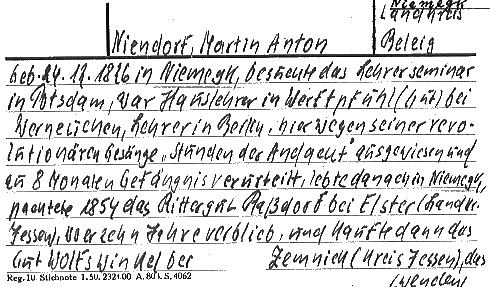 Niemegk
Landkreis
Niendorf, Martin Anton
Belzig
geb. 24. 12. 1826 in Niemegk, besuchte das Lehrerseminar
in Potsdam, war Hauslehrer in Werftpfuhl (Gut) bei
Werneuchen, Lehrer in Berlin, hier wegen seiner revo-
lutionären Gesänge "Stunden der Andacht" ausgewiesen und
zu 8 Monaten Gefängnis verurteilt, lebte danach in Niemegk,
pachtete 1854 das Rittergut Raßdorf bei Elster (Landkr.
Jessen), wo er zehn Jahre verblieb, und kaufte dann das
Gut Wolfswinkel bei Zemnick (Kreis Jessen), das
Reg. 10 Stichnote 1. 50. 2321.00 A. 80 k. S. 4062